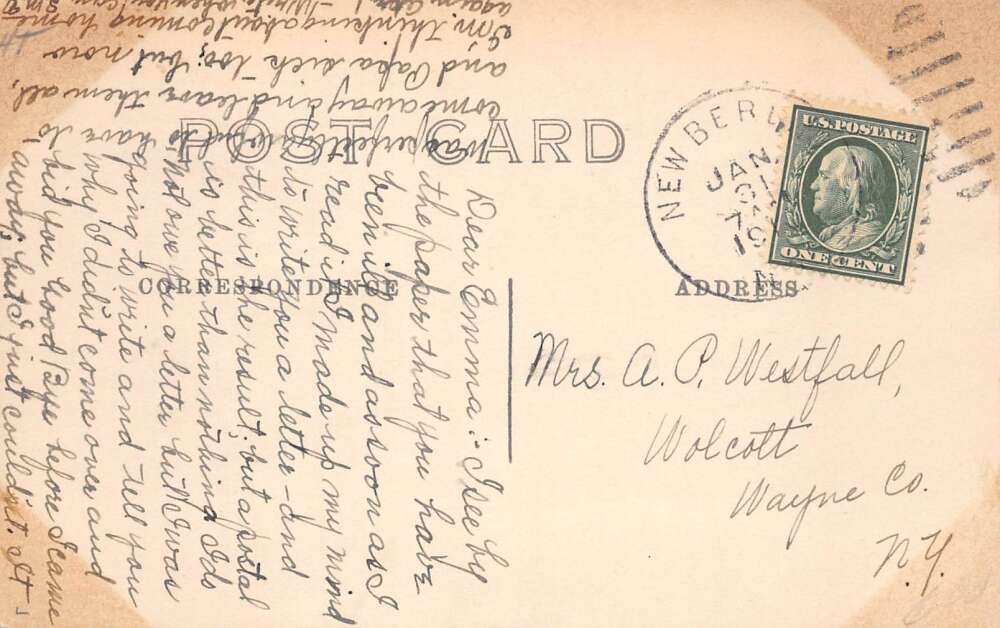 POST CARD
CORRESPONDENCE
ADDRESS
NEW BERL
JAN.
31
7 A
19
N
U.S. POSTAGE
ONE CENT
Mrs. A. P. Westfall,
Wolcott
Wayne Co.
N.Y.
Dear Emma:- I see by
the paper that you have
been ill and as soon as I
read it I made up my mind
to write you a letter - and
this is the result, but a postal
is better than nothing. I do
not owe you a letter but I was
going to write and tell you
why I didn't come over and
bid you Good Bye before I came
away, but I just couldn't. It
was perfectly
come away and leave them all,
and Papa sick too; but now
I'm thinking about coming home
again